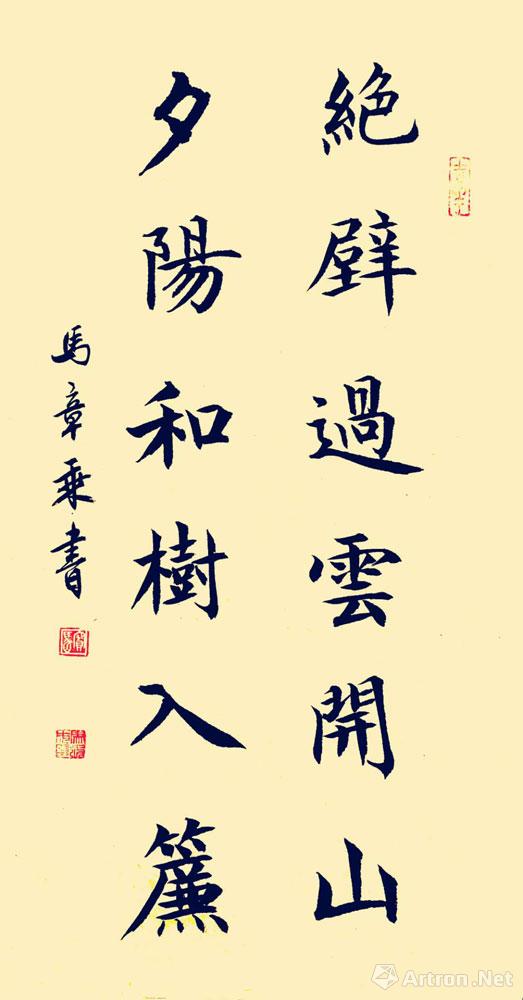 絶壁過雲開山
夕陽和樹入簾
馬章乘書
Artron.Net